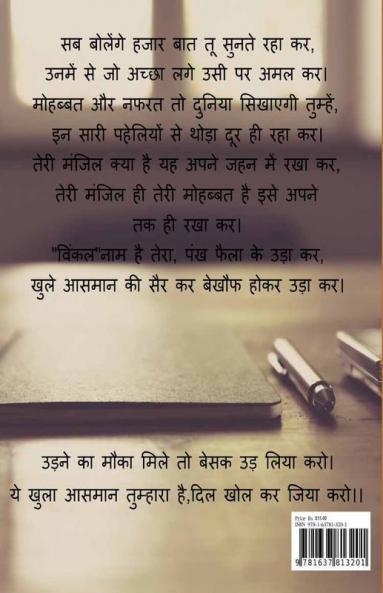 सब बोलेंगे हजार बात तू सुनते रहा कर,
उनमें से जो अच्छा लगे उसी पर अमल कर।
मोहब्बत और नफरत तो दुनिया सिखाएगी तुम्हें,
इन सारी पहेलियों से थोड़ा दूर ही रहा कर।
तेरी मंजिल क्या है यह अपने जहन में रखा कर,
तेरी मंजिल ही तेरी मोहब्बत है इसे अपने
तक ही रखा कर।
"विंकल"नाम है तेरा, पंख फैला के उड़ा कर,
खुले आसमान की सैर कर बेखौफ होकर उड़ा कर।
उड़ने का मौका मिले तो बेसक उड़ लिया करो।
ये खुला आसमान तुम्हारा है,दिल खोल कर जिया करो।।
Price Rs
ISBN 978-1-63781-320-1
9781637813201